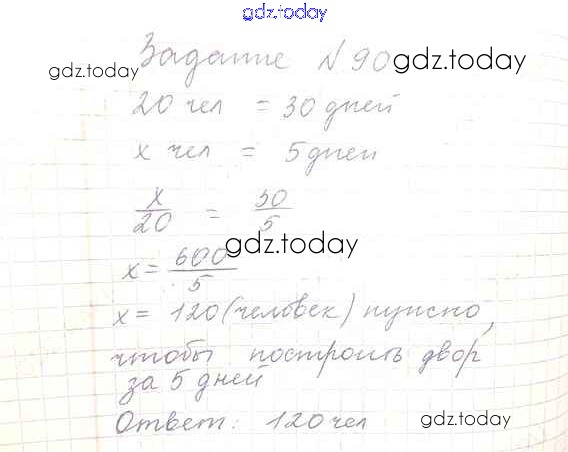 gdz.today
Задание №90 gdz.today
gdz.today
20 чел = 30 дней
x чел = 5 дней
x/20 = 30/5
gdz.today
x = 600/5
x = 120 (человек) нужно,
чтобы построить двор
за 5 дней
Ответ: 120 чел gdz.today